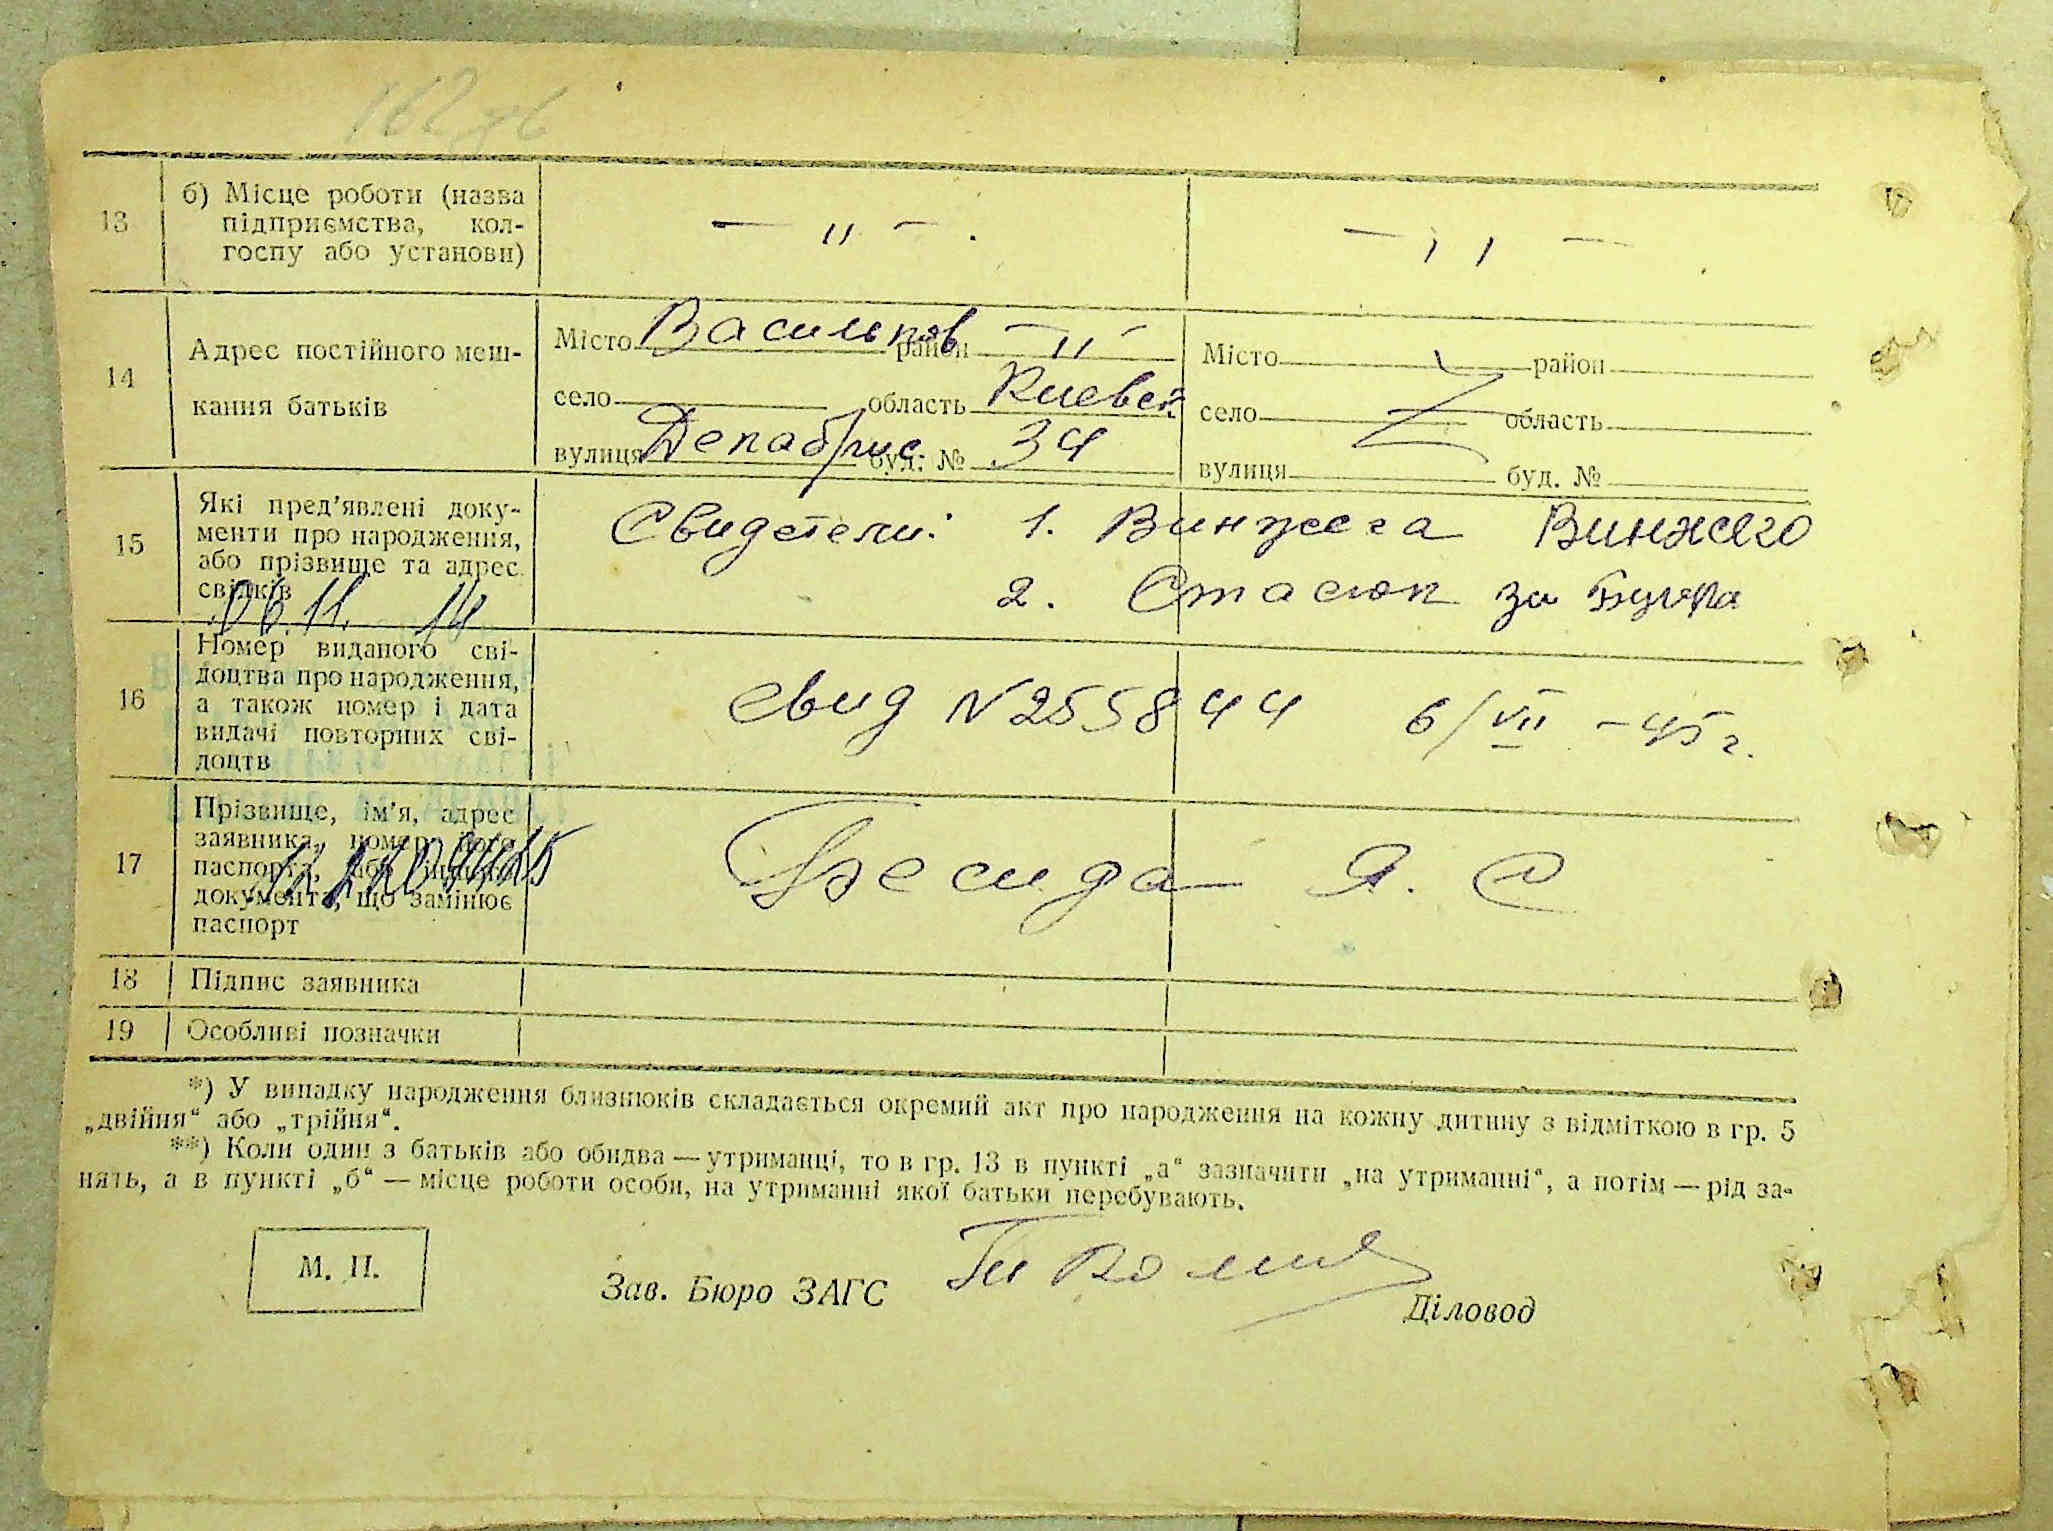 162 зв
13
б) Місце роботи (назва
підприємства, кол-
госпу або установи)
— " — .
— " —
14
Адрес постійного меш-
кання батьків
Місто Васильков район — " —
село область Киевск
вулиця Декабрис буд. № 34
Місто район
село область
вулиця буд. №
15
Які пред'явлені доку-
менти про народження,
або прізвище та адрес
свідків
Свидетели: 1. Винжега Винжего
2. Стасюк за
16
Номер виданого сві-
доцтва про народження,
а також номер і дата
видачі повторних сві-
доцтв
свид N 255844 6/VII – 45 г.
17
Прізвище, ім'я, адрес
заявника, номер його
паспорта, або іншого
документа, що замінює
паспорт
Бесида Я. С
18
Підпис заявника
19
Особливі позначки
*) У випадку народження близнюків складається окремий акт про народження на кожну дитину з відміткою в гр. 5
„двійня“ або „трійня“.
**) Коли один з батьків або обидва — утриманці, то в гр. 13 в пункті „а“ зазначити „на утриманні“, а потім — рід за-
нять, а в пункті „б“ — місце роботи особи, на утриманні якої батьки перебувають.
М. П.
Зав. Бюро ЗАГС
Діловод